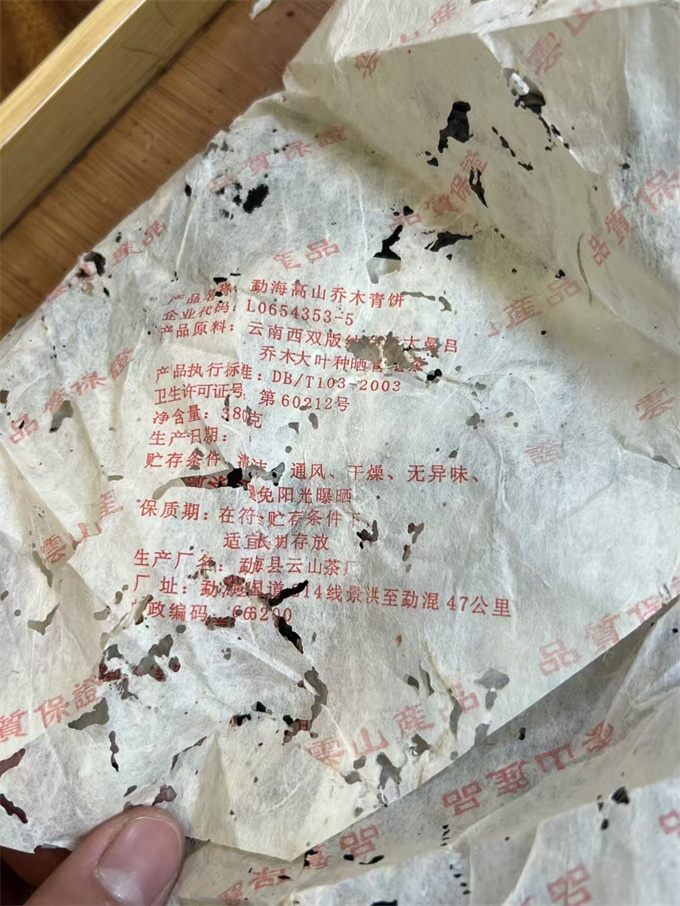 品質保證
雲山産品
产品名称: 勐海高山乔木青饼
企业代码: L0654353-5
产品原料: 云南西双版 大曼吕
乔木大叶种晒
产品执行标准: DB/T103-2003
卫生许可证号 第60212号
净含量: 380克
生产日期:
贮存条件: 清洁 通风、干燥、无异味、
免阳光曝晒
保质期: 在符 贮存条件下
适宜长期存放
生产厂名: 勐海县云山茶厂
厂 址: 勐海 国道 214线景洪至勐混47公里
政编码 666200
品質保證
雲山産品
品質保證
雲山産品
品質保證
雲山産品